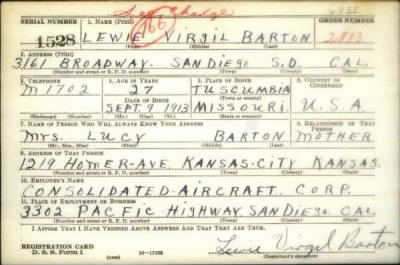 See Change
SERIAL NUMBER 1. NAME (Print) ORDER NUMBER
1528 LEWIE VIRGIL BARTON 2883
766
(First) (Middle) (Last)
2. ADDRESS (Print)
3161 BROADWAY. SAN DIEGO S.D. CAL.
(Number and street or R. F. D. number) (Town) (County) (State)
3. TELEPHONE 4. AGE IN YEARS 5. PLACE OF BIRTH 6. COUNTRY OF CITIZENSHIP
M 1702 27 TUSCUMBIA
DATE OF BIRTH (Town or county)
SEPT 9 1913 MISSOURI. U.S.A.
(Exchange) (Number) (Mo.) (Day) (Yr.) (State or country)
7. NAME OF PERSON WHO WILL ALWAYS KNOW YOUR ADDRESS 8. RELATIONSHIP OF THAT PERSON
MRS. LUCY BARTON MOTHER
(Mr., Mrs., Miss) (First) (Middle) (Last)
9. ADDRESS OF THAT PERSON
1219 HOMER-AVE. KANSAS-CITY KANSAS.
(Number and street or R. F. D. number) (Town) (County) (State)
10. EMPLOYER'S NAME
CONSOLIDATED-AIRCRAFT. CORP.
11. PLACE OF EMPLOYMENT OR BUSINESS
3302 PACIFIC HIGHWAY. SAN DIEGO. CAL.
(Number and street or R. F. D. number) (Town) (County) (State)
I AFFIRM THAT I HAVE VERIFIED ABOVE ANSWERS AND THAT THEY ARE TRUE.
REGISTRATION CARD
D. S. S. Form 1 Lewie Virgil Barton